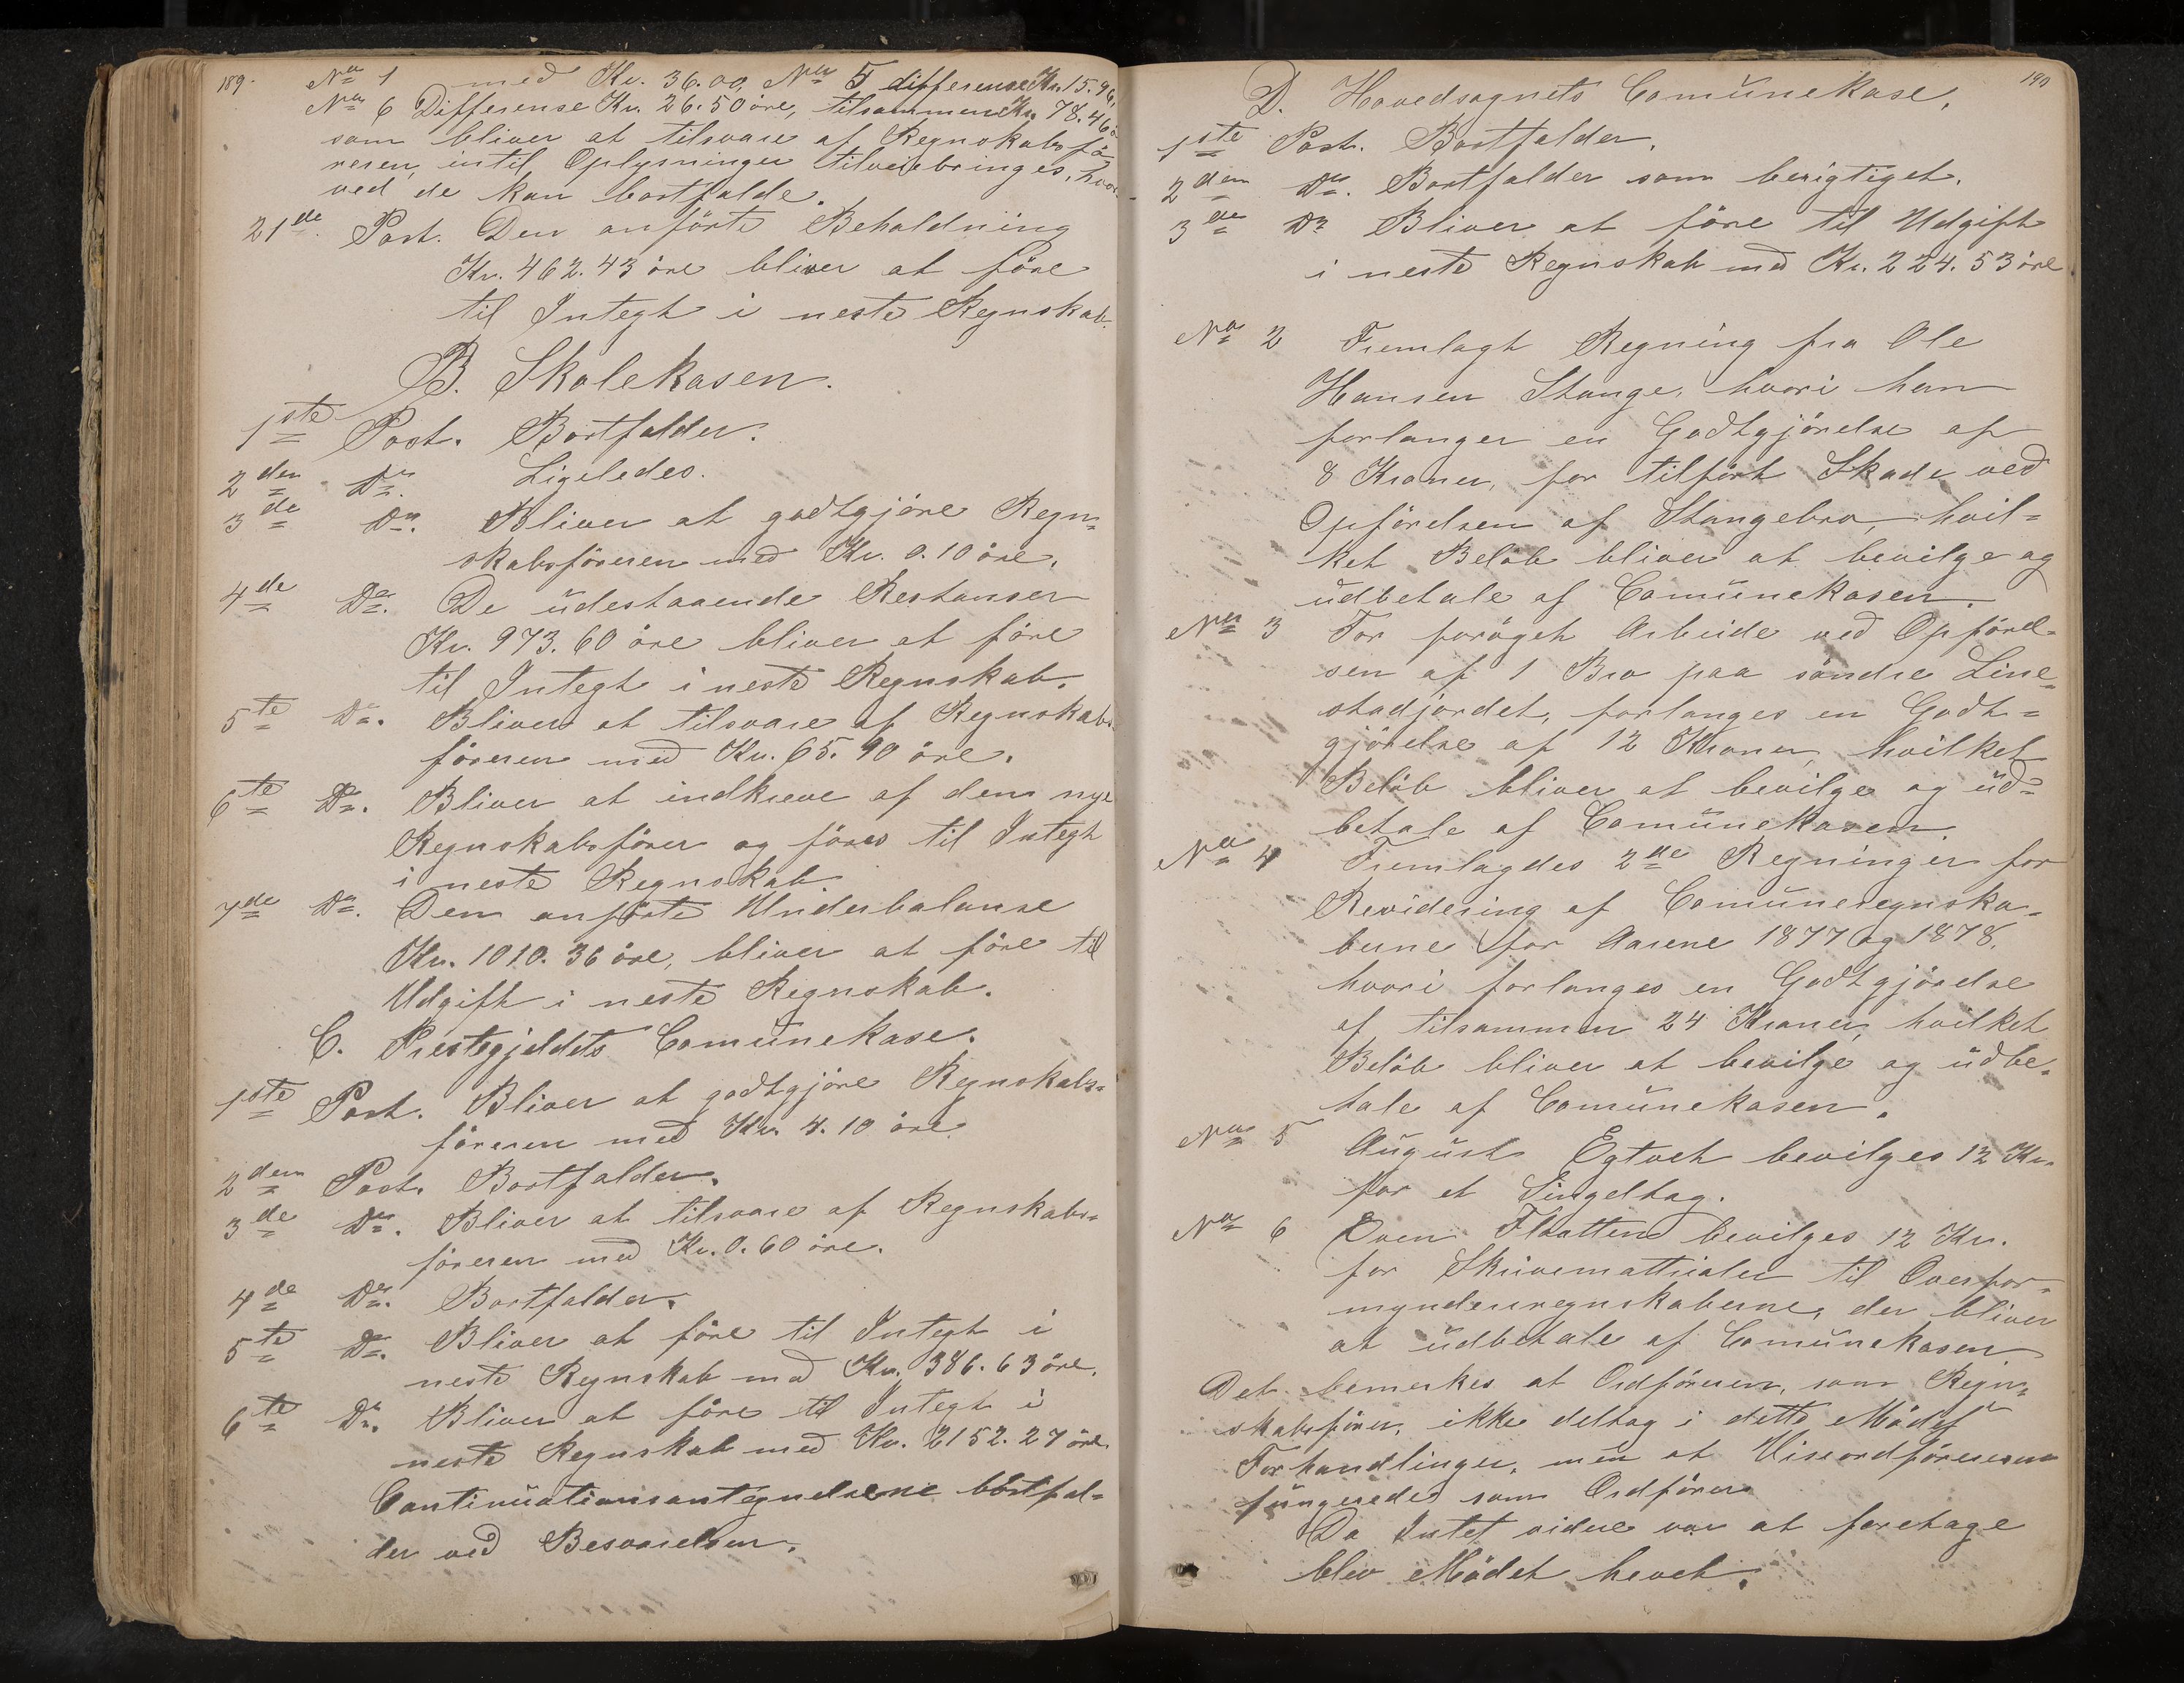 189.
No 1 med Kr. 36.00, No 5 differense Kr. 15.96,
No 6 Differense Kr. 26.50 öre, tilsammen Kr. 78.46 ö
som bliver at tilsvare af Regnskabsfö-
reren, intil Oplysninger tilveiebringes, hvor-
ved de kan bortfalde.
21de Post. Den anförte Behaldning
Kr. 462.43 öre bliver at före
til Integt i neste Regnskab.
B. Skolekasen.
1ste Post. Bortfalder.
2den Do. Ligeledes.
3de Do. Bliver at godtgjöre Regn-
skabsföreren med Kr. 0.10 öre.
4de Do. De üdestaaende Restanser
Kr. 973.60 öre bliver at före
til Integt i neste Regnskab.
5te Do. Bliver at tilsvare af Regnskabs-
föreren med Kr. 65.90 öre.
6te Do. Bliver at indkreve af den nye
Regnskabsförer og föres til Integt
i neste Regnskab.
7de Do. Den anförte Underbalanse
Kr. 1010.36 öre, bliver at före til
Udgift i neste Regnskab.
C. Prestegjeldets Comünekase.
1ste Post. Bliver at godtgjöre Regnskabs-
föreren med Kr. 4.10 öre.
2den Post. Bortfalder.
3de Do. Bliver at tilsvare af Regnskabs-
föreren med Kr. 0.60 öre.
4de Do. Bortfalder.
5te Do. Bliver at före til Integt i
neste Regnskab med Kr. 386.63 öre.
6te Do. Bliver at före til Integt i
neste Regnskab med Kr. 2152.27 öre.
Continüationsantegnelserne bortfal-
der ved Besvarelsen.
190
D. Hovedsognets Comünekase.
1ste Post. Bortfalder.
2den Do. Bortfalder som berigtiget.
3de Do Bliver at före til Udgift
i neste Regnskab med Kr. 224.53 öre
No 2 Fremlagt Regning fra Ole
Hansen Stange, hvori han
forlanger en Godtgjörelse af
8 Kroner, for tilfört Skade ved
Opförelsen af Stangebro, hvil-
ket Belöb bliver at bevilge og
üdbetale af Comünekasen.
No 3 For foröget Arbeide ved Opförel-
sen af 1 Bro paa söndre Line-
stadjordet, forlanges en Godt-
gjörelse af 12 Kroner, hvilket
Belöb bliver at bevilge og üd-
betale af Comünekasen.
No 4 Fremlagdes 2de Regninger for
Revidering af Comüneregnska-
berne for Aarene 1877 og 1878,
hvori forlanges en Godtgjörelse
af tilsammen 24 Kroner, hvilket
Belöb bliver at bevilge og üdbe-
tale af Comünekasen.
No 5 Aügüst Egtvet bevilges 12 Kr.
for et Singeltag.
No 6 Even Flaatten bevilges 12 Kr.
for Skrivemattrialer til Overfor-
mynderregnskaberne, der bliver
at üdbetale af Comünekasen.
Det bemerkes at Ordföreren, som Regn-
skabsförer, ikke deltog i dette Mödes
Forhandlinger, men at Viseordföreren
füngerede som Ordförer.
Da Intet videre var at foretage
blev Mödet hevet.